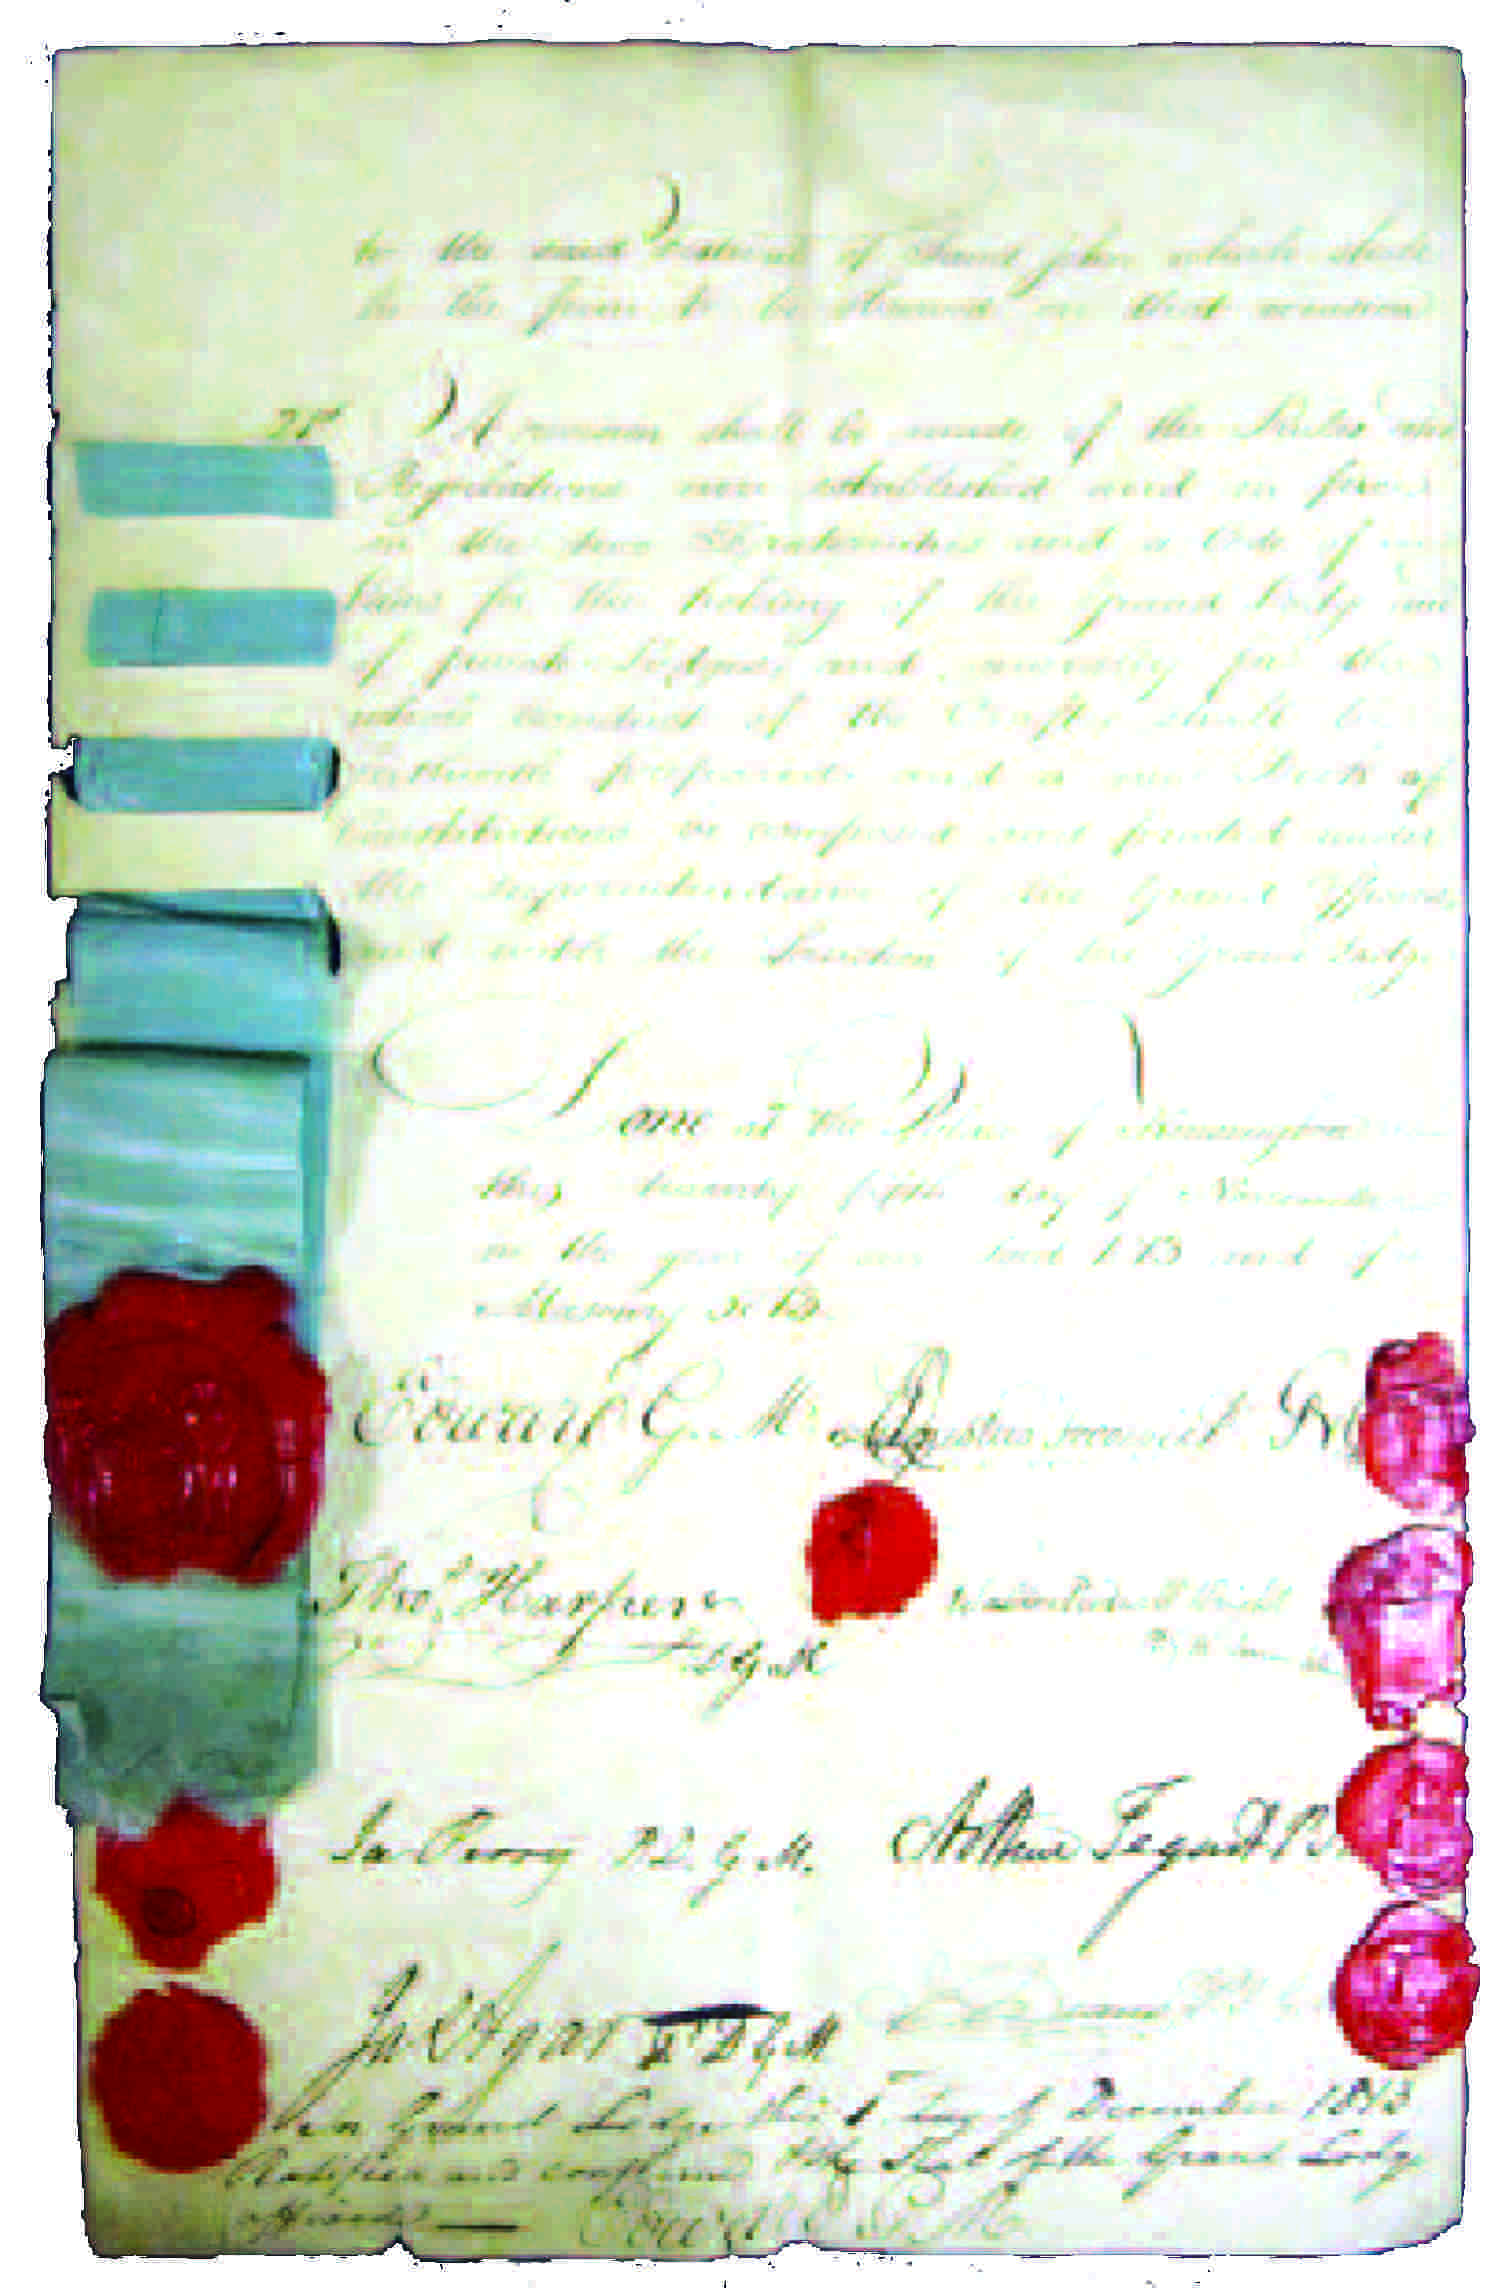 to the said Festival of Saint John which shall
be the form to be observed on that occasion
A revision shall be made of the Rules and
Regulations now established and in force
in the two Fraternities and a Code of
Laws for the holding of the Grand Lodge and
of private Lodges, and generally for the
whole conduct of the Craft, shall be
forthwith prepared and a new Book of
Constitutions be composed and printed under
the superintendance of the Grand Officers,
and with the Sanction of the Grand Lodge
Done at the Palace of Kensington
this twenty fifth day of November
in the year of our Lord 1813 and of
Masonry 5813.
Edward G. M. Augustus Frederick G M
Thos. Harper
D G M
Jas Perry P. D. G. M. Arthur Tegart P.
Jas. Agar P D G M
In Grand Lodge this 1 Day of December 1813
Ratified and confirmed & the Seal of the Grand Lodge
affixed — Edward G. M.